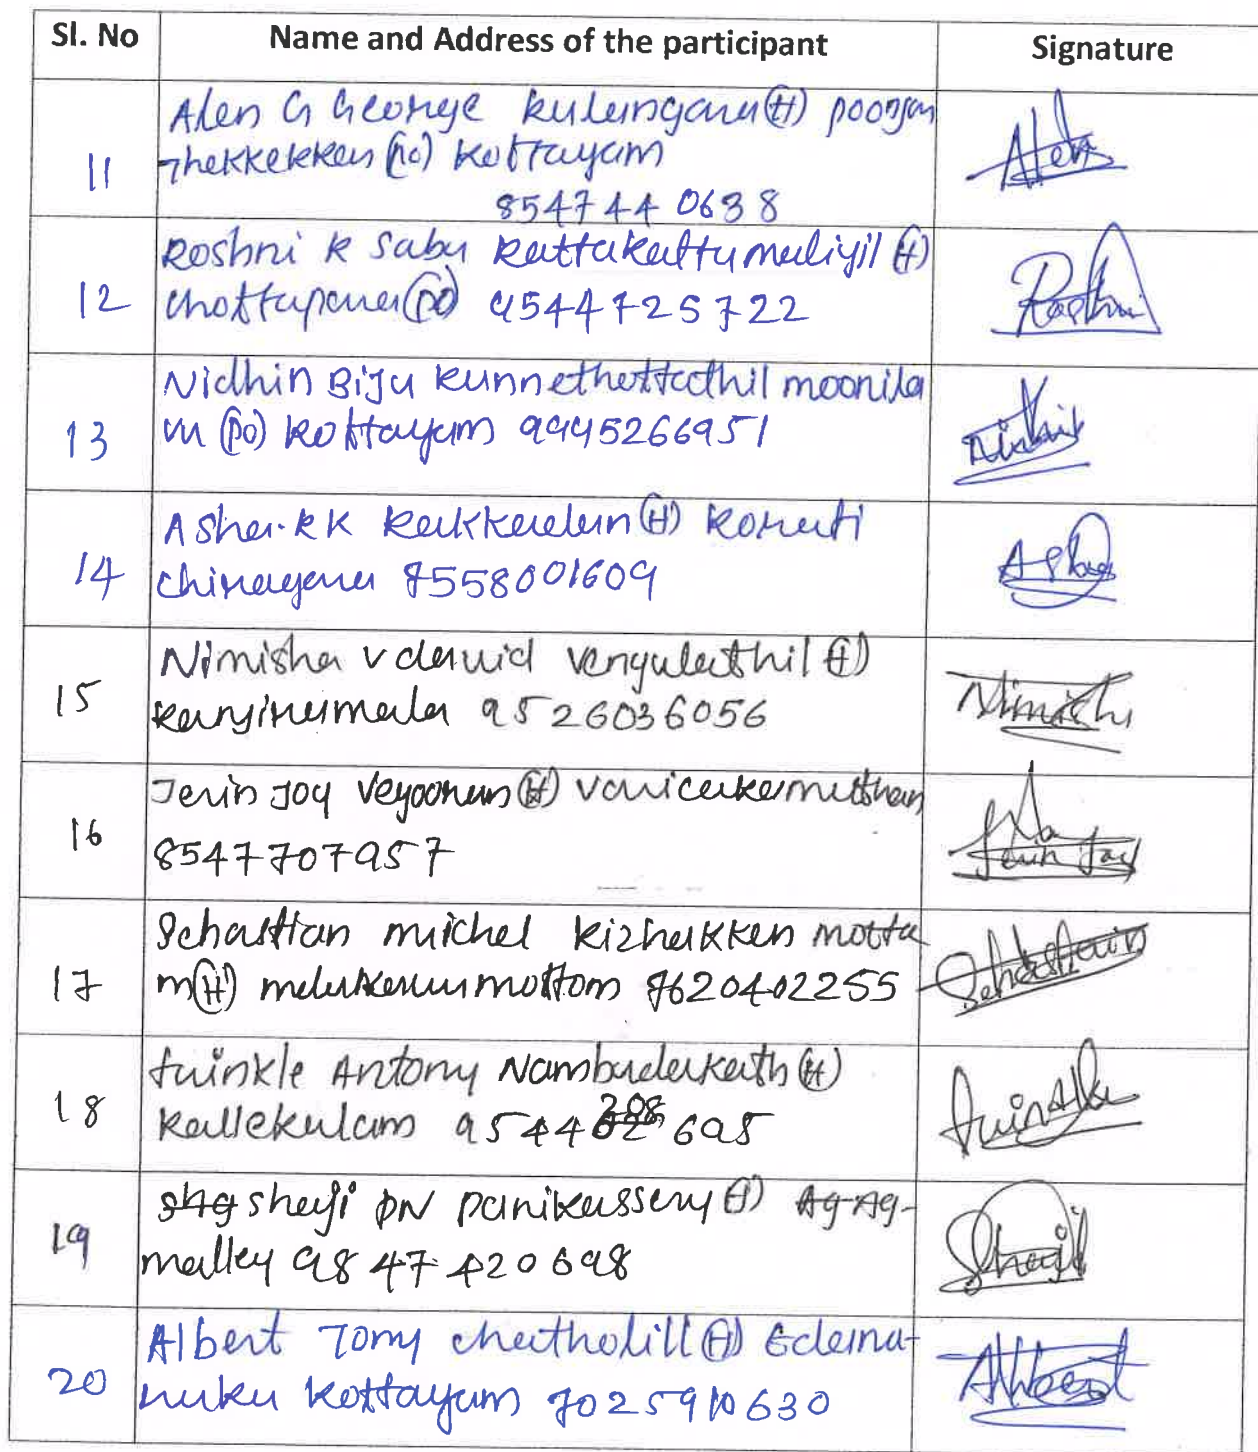 Sl. No Name and Address of the participant Signature
11 Alen G George kulangara (H) poonjar
Thekkekkara (po) Kottayam
8547440638
12 Roshni K Sabu kattakattumaliyil (H)
chottupara (po) 9544725722
13 Nidhin Biju kunnethottathil moonila
vu (po) kottayam 9995266951
14 Asha.K K kakkadan (H) koruti
chirayana 8558001609
15 Nimisha v david vengalathil (H)
kanjiramala 9526036056
16 Jerin Joy (H)
8547707957 Jerin Joy
17 Sebastian michel kizhakken motta
m (H) melukavumottom 9620402255
18 twinkle Antony Nambudakath (H)
kallekulam 9544 208 695
19 shaji PN panikassery (H)
malley 9847420698 Shaji
20 Albert Tomy cheetholill (H) Edama-
ruku kottayam 7025910630 Albert